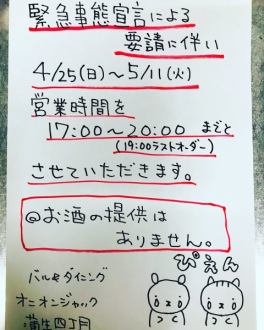 緊急事態宣言による
要請に伴い
4/25(日)～5/11(火)
営業時間を
17:00～20:00 までと
(19:00ラストオーダー)
させていただきます。
@お酒の提供は
ありません。
ぴえん
バル&ダイニング
オニオンジャック
蒲生四丁目